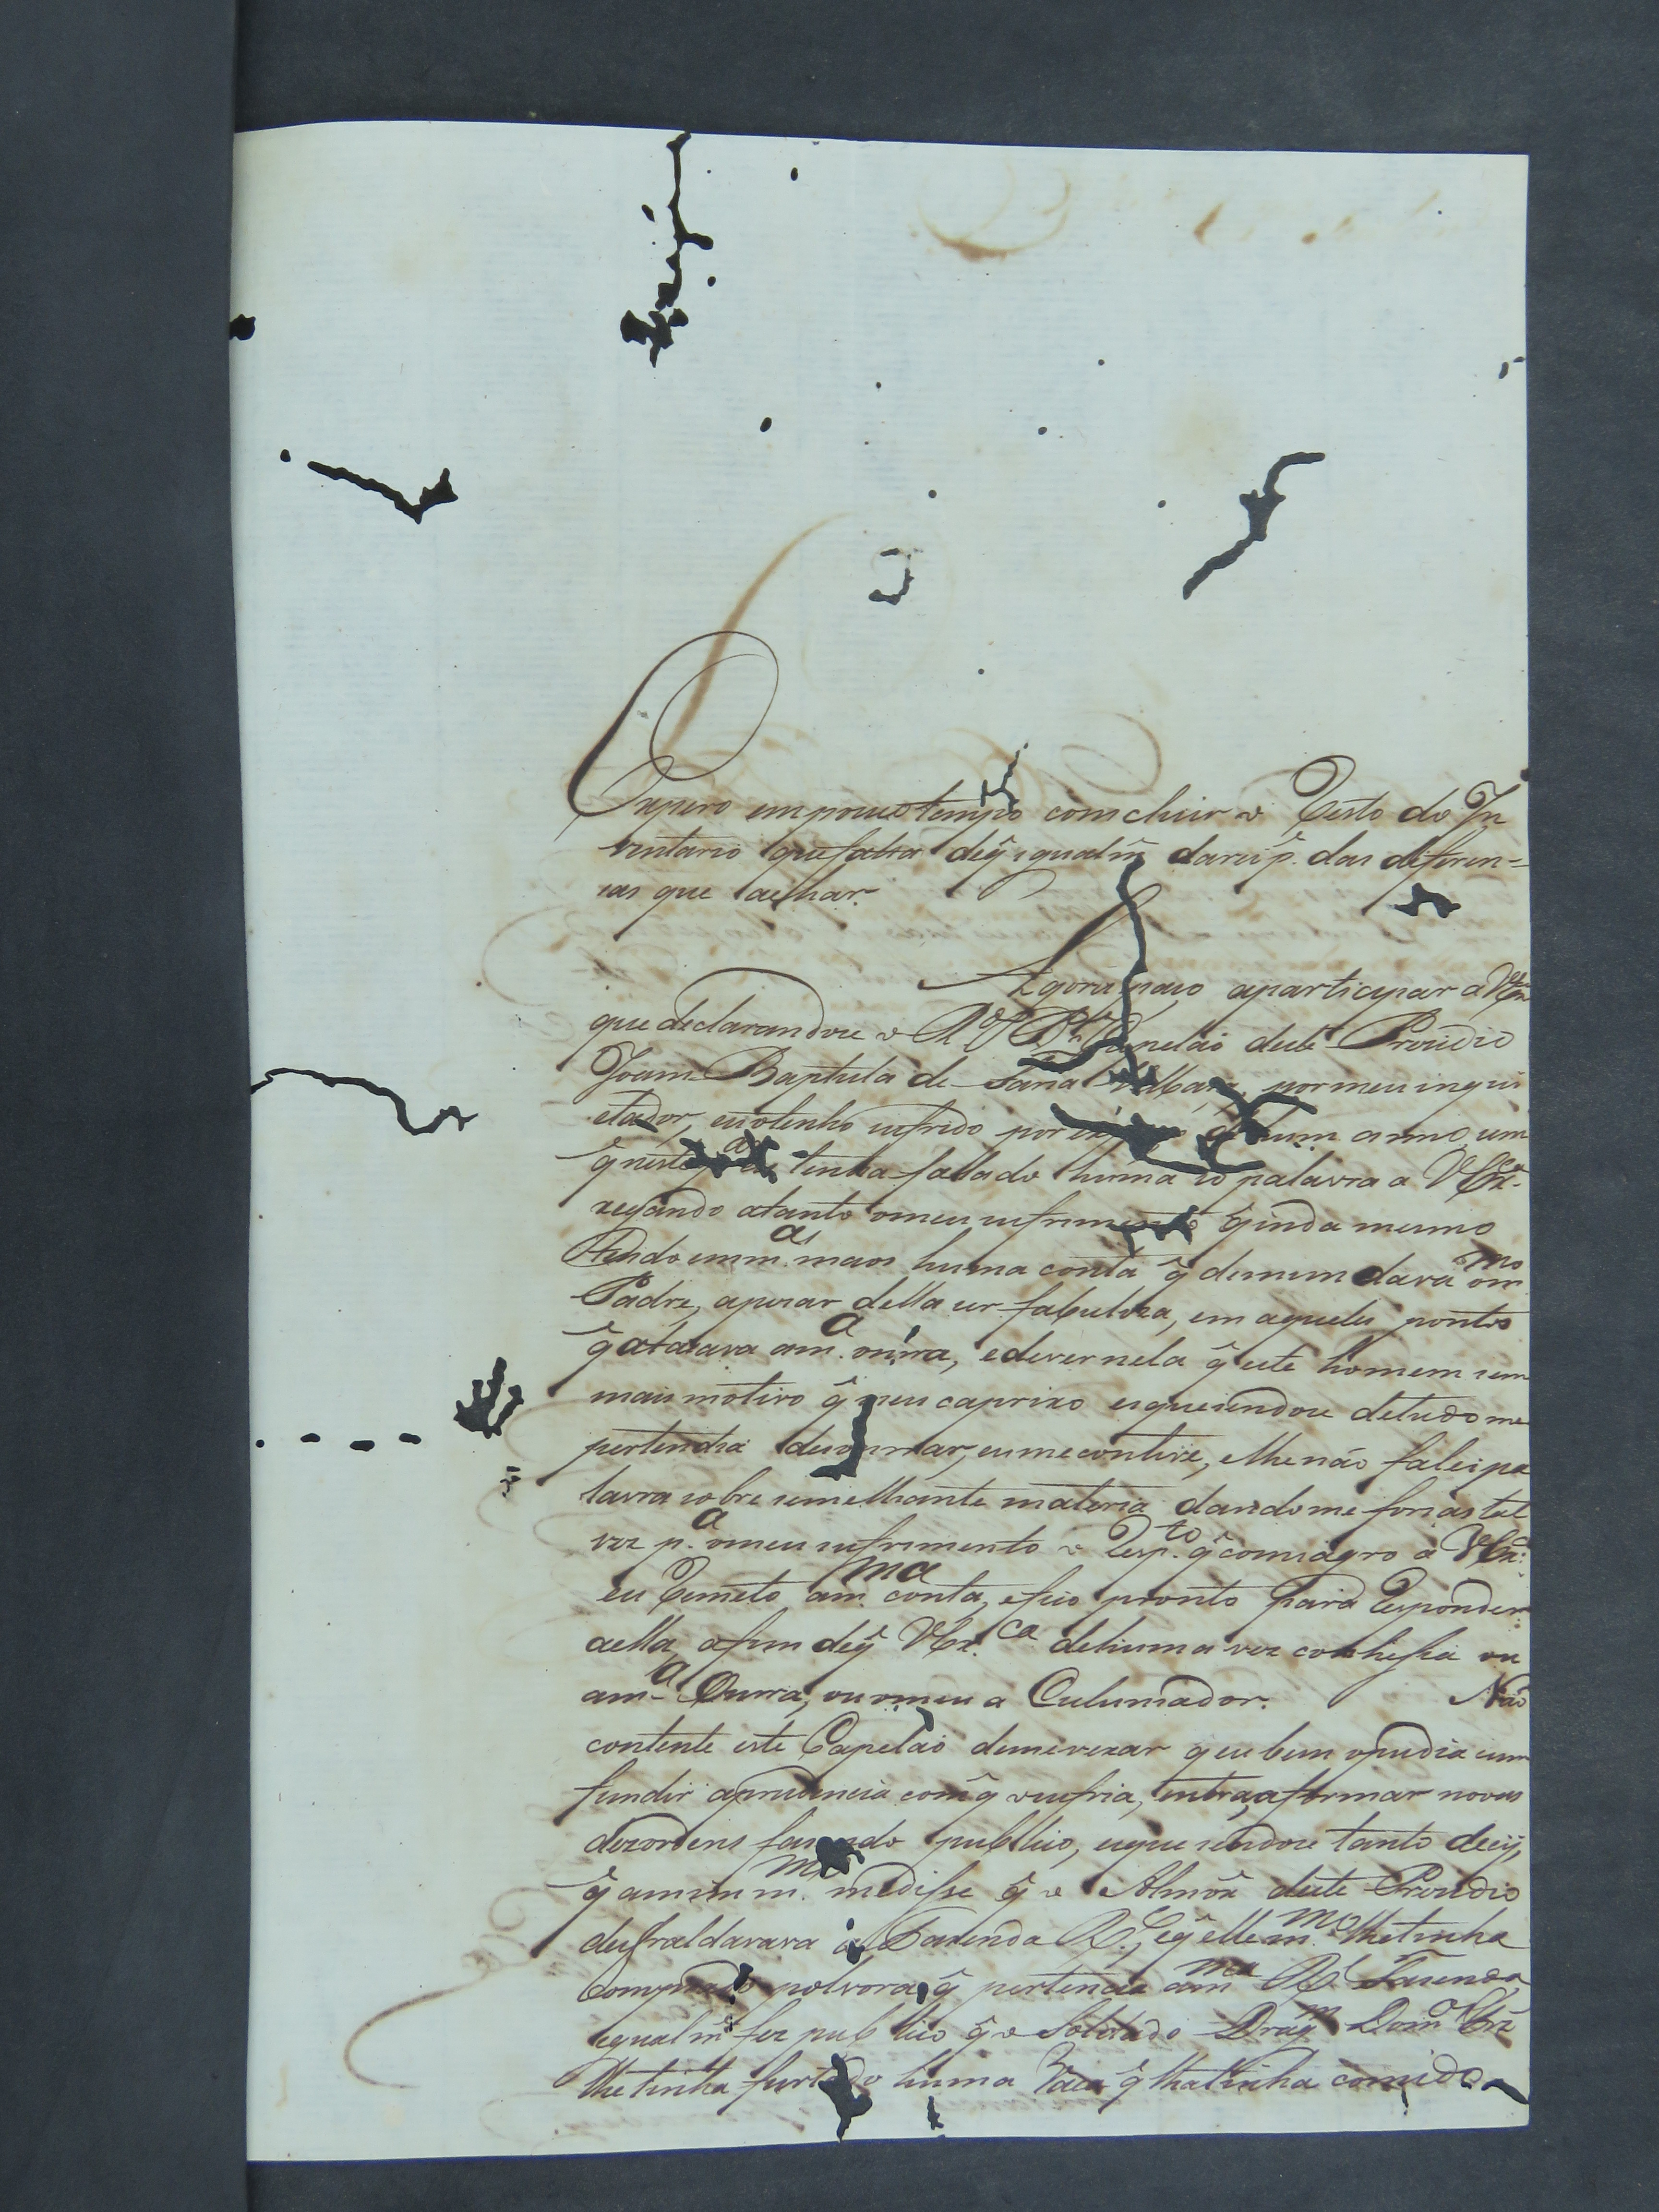 Espero em pouco tempo comcluir o Resto do In
ventario que falta de q̃ igualm̃ darei p. das diferen=
sas que achar.
Agora paso aparticipar a VEx
que declarandose o R.do P.e Capelão deste Prezidio
Joam Baptista de Santa Barbara, por meu inqui
etador, eu o tenho sufrido por hum anno, sem
q̃ neste tinha fallado huma só palavra a VEx.ª
xegando atanto o meu sufrimento q̃ inda mesmo
tendo em m.as maos huma conta q̃ demim dava om.mo
Padre, apezar della ser fabuloza, em aqueles pontos
q̃ atacava am.ª onrra, e de ver nela q̃ este homem sem
mais motivo q̃ seu caprixo esquesendose de tudo me
pertendia desonrrar, eu me contive, elhe não falei pa
lavra sobre semelhante materia dandome forsas tal
vez p.ª omeu sufrimento o Resp.to q̃ consagro a VEx.ª
eu Remeto am.ma conta, efico pronto para Responder
aella, afim de q̃ VEx.ca de huma vez conhessa ou
am.ª Onrra, ou omeu a Culumiador. Não
contente este Capelaõ de me vexar q eu bem o pudia con
fundir aprudencia com q̃ o sufria, entra, aformar novas
dezordens fasendo publico, esquesendose tanto desy,
q̃ amim m.mo me disse q̃ o Almox̃ deste Prezidio
desfraldavava a Fazenda R.l, e q̃ elle m.mo lhe tinha
Comprado polvora, q̃ pertencia am.ma R.l Fazenda
egualm.te fez publico q̃ o Soldado Drag.m Dom.os
lhe tinha furtado huma Vaca q̃ lha tinha comido